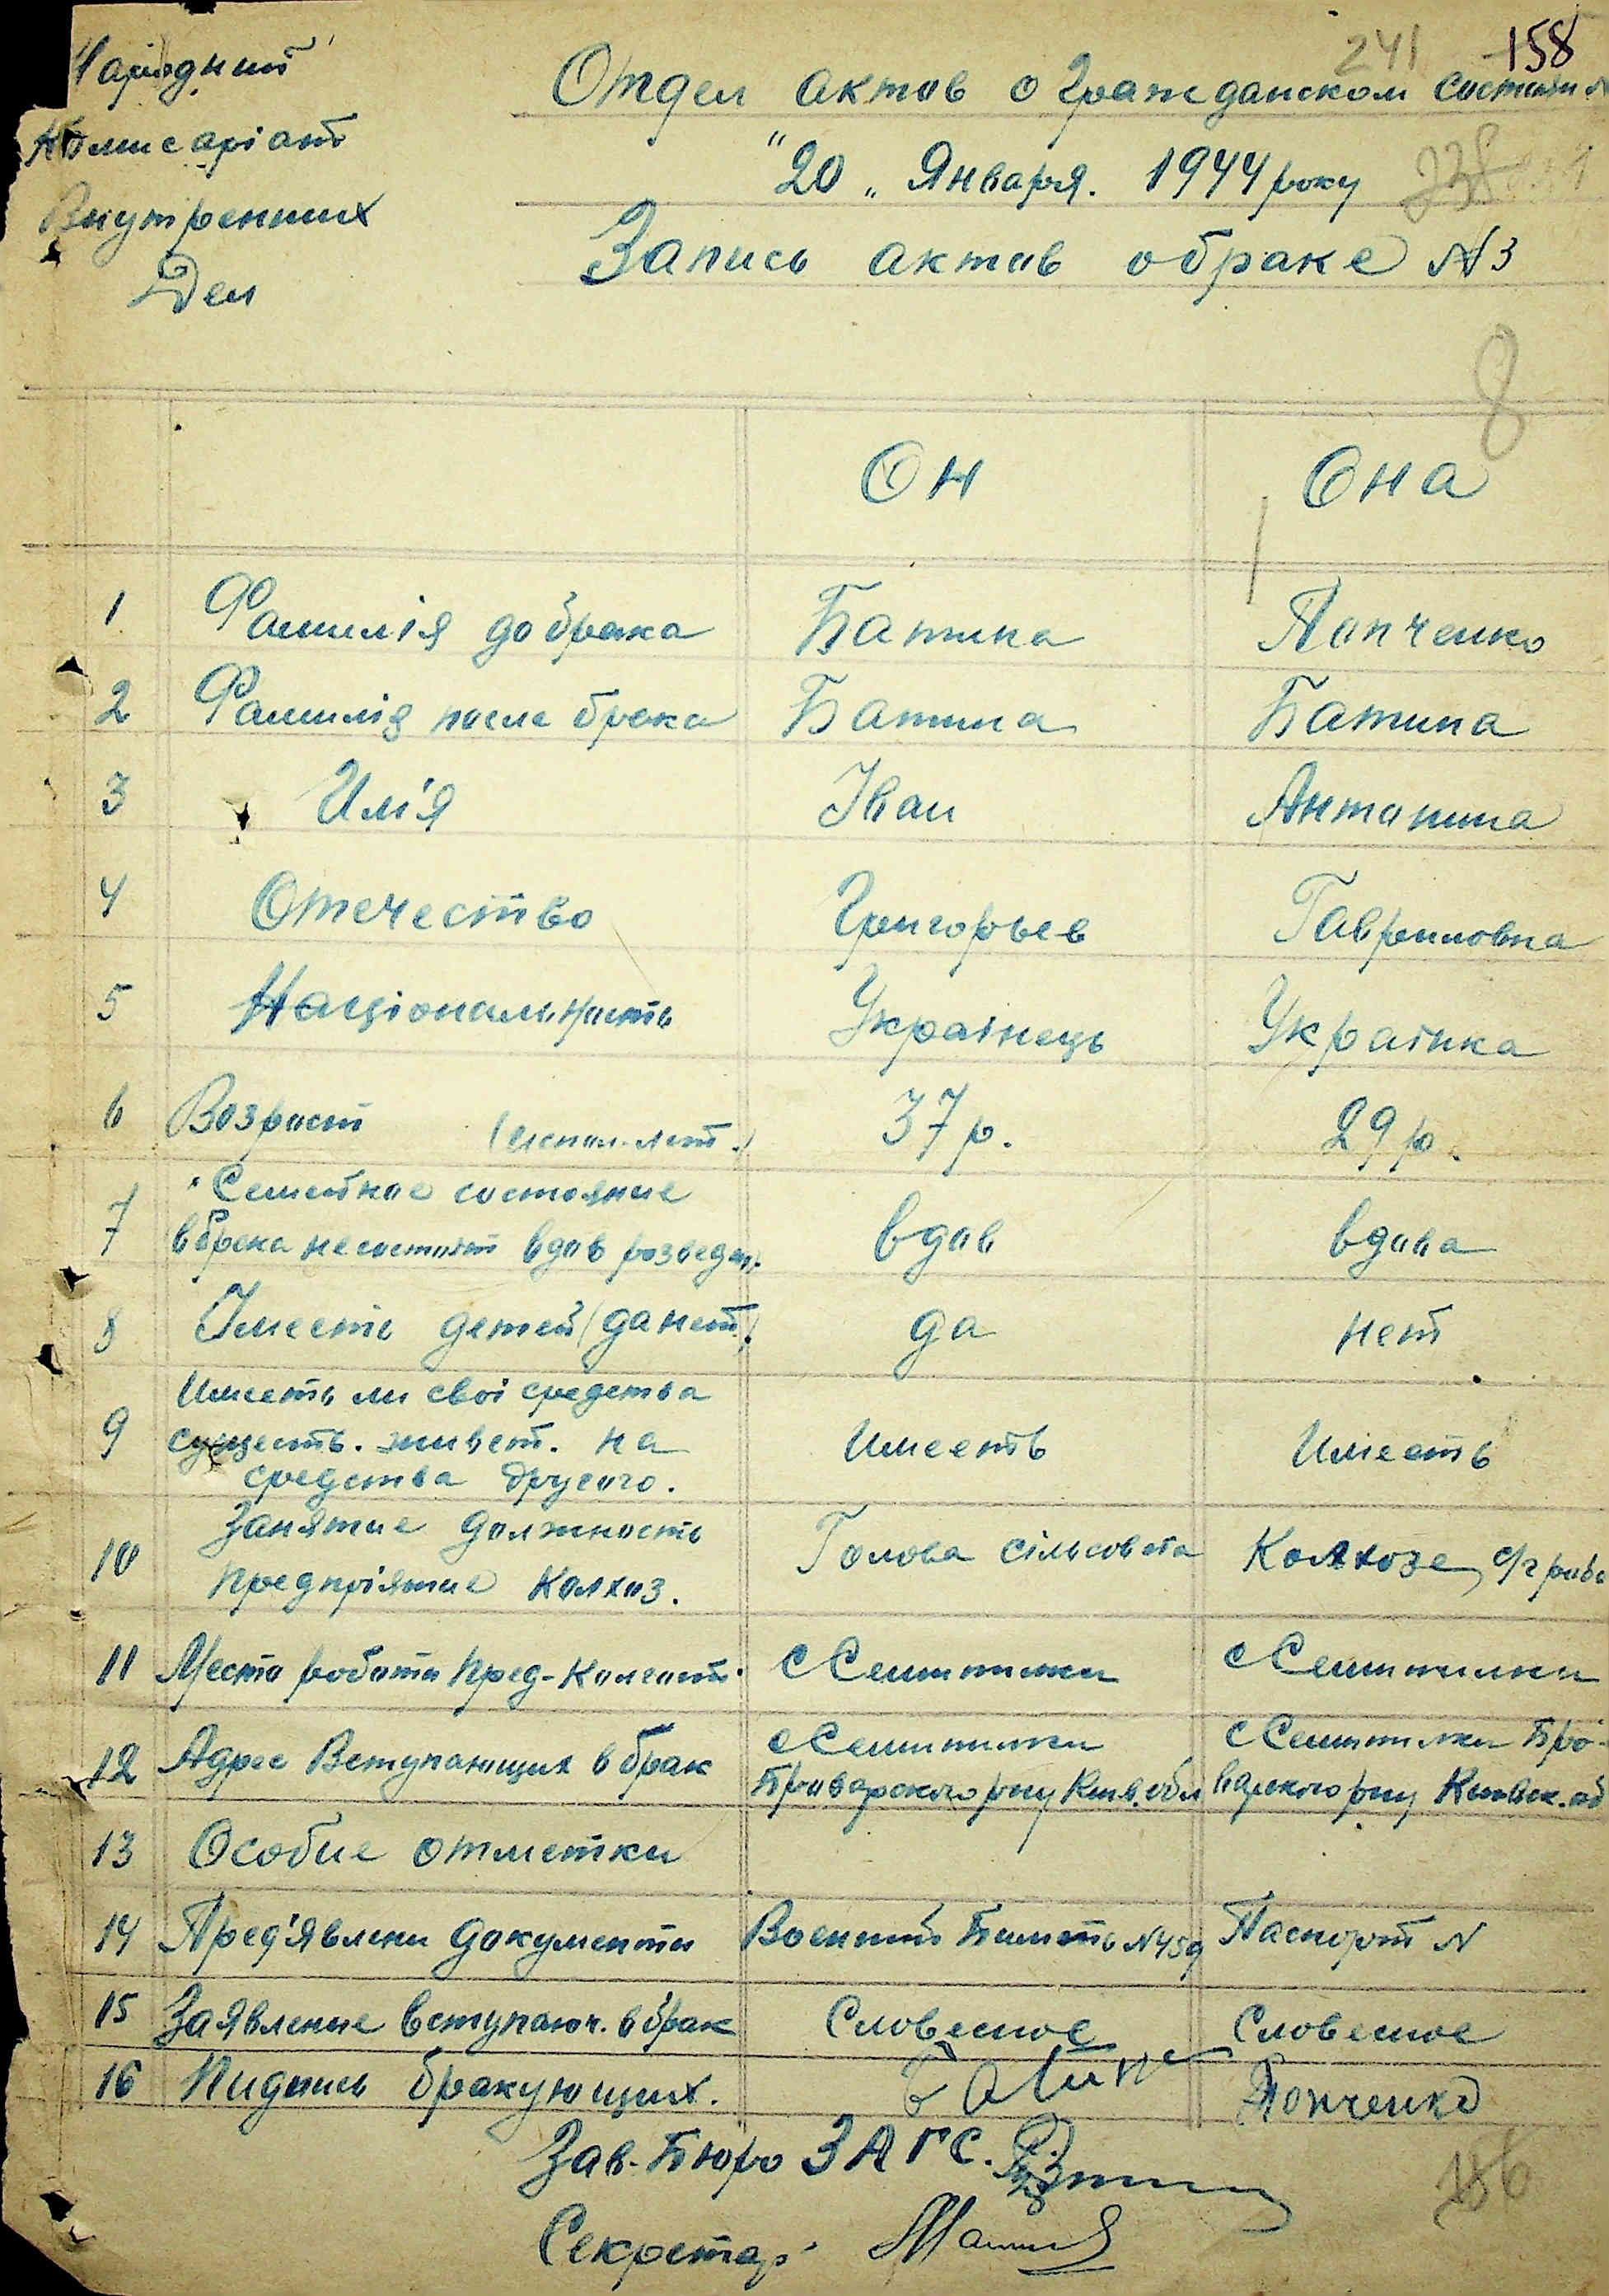 Народний
Комисаріат
Внутренних
Дел
241 158
Отдел актов о Гражданском
"20 „ Января. 1944 року
238
Запись актов о браке №3
8
Он Она
1 Фамилія до брака Батина Панченко
2 Фамилія после брака Батина Батина
3 Им'я Іван Антанина
4 Отечество Григорьев Гавриловна
5 Національность Украінець Украінка
6 Возраст (исполн. лет.) 37 р. 29 р.
7 Семейное состояние
в брака несостоит вдов розведен. вдов вдова
8 Імееть детей (да нет) да нет
9 Имееть ли своі средства
существ. живет. на Имееть Имееть
средства другого.
10 Занятие должность Голова сільсовета Колхозе, с/г
предпріятие Колхоз.
11 Место роботи пред- с Семиполки с Семиполки
12 Адрес Вступающих в брак с Семиполки с Семиполки Бро-
Броварского р-ну Киів. обл варского р-ну Киевск. об
13 Особие отметки
14 Пред'явлени документи Военний Билеть №459 Паспорт №
15 Заявление вступающ. в брак Словесное Словесное
16 Пидпись бракующих. Батина Панченко
Зав. Бюро ЗАГС.
Секретар
156